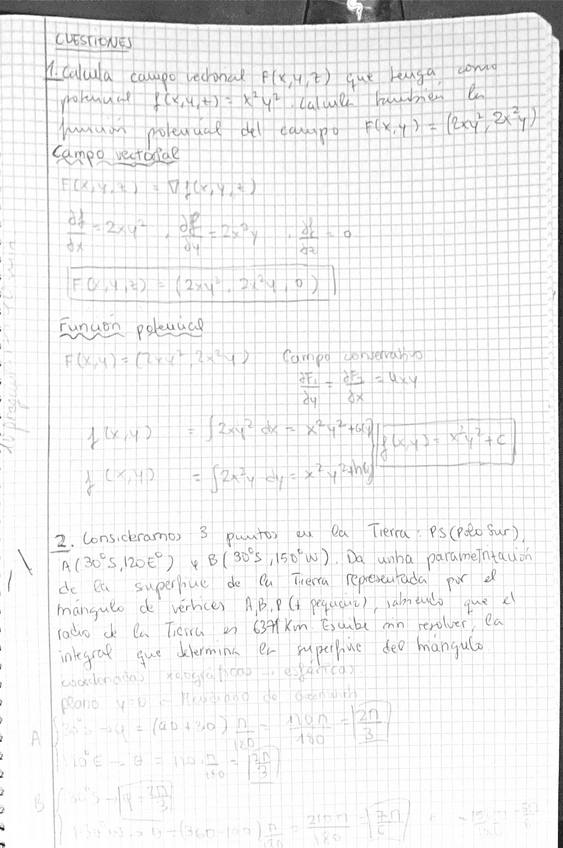 CUESTIONES
1. Calcula campo vectorial F(x,y,z) que tenga como
potencial f(x,y,z) = x²y². Calcula también la
función potencial del campo F(x,y) = (2xy², 2x²y)
Campo vectorial
F(x,y,z) = ∇f(x,y,z)
∂f/∂x = 2xy² , ∂f/∂y = 2x²y , ∂f/∂z = 0
F(x,y,z) = (2xy², 2x²y, 0)
Función potencial
F(x,y) = (2xy², 2x²y) Campo conservativo
∂F₁/∂y = ∂F₂/∂x = 4xy
f(x,y) = ∫2xy² dx = x²y² + g(y)
f(x,y) = x²y² + C
f(x,y) = ∫2x²y dy = x²y² + h(x)
2. Consideramos 3 puntos en la Tierra: PS (Polo Sur),
A (30°S, 120E°) y B (30°S, 150°W). Da unha parametrización
de la superficie de la Tierra representada por el
triángulo de vértices A, B, P (+ pequeño), sabiendo que el
radio de la Tierra es 6371 Km. Escribe sin resolver, la
integral que determina la superficie del triángulo
coordenadas geográficas → esféricas
plano y=0 → Meridiano de Greenwich
A 30°S → φ = (90+30) π/180 = 120π/180 = 2π/3
120°E → θ = 120 · π/180 = 2π/3
B 30°S → φ = 2π/3
150°W → θ = (360-150) π/180 = 210π/180 = 7π/6